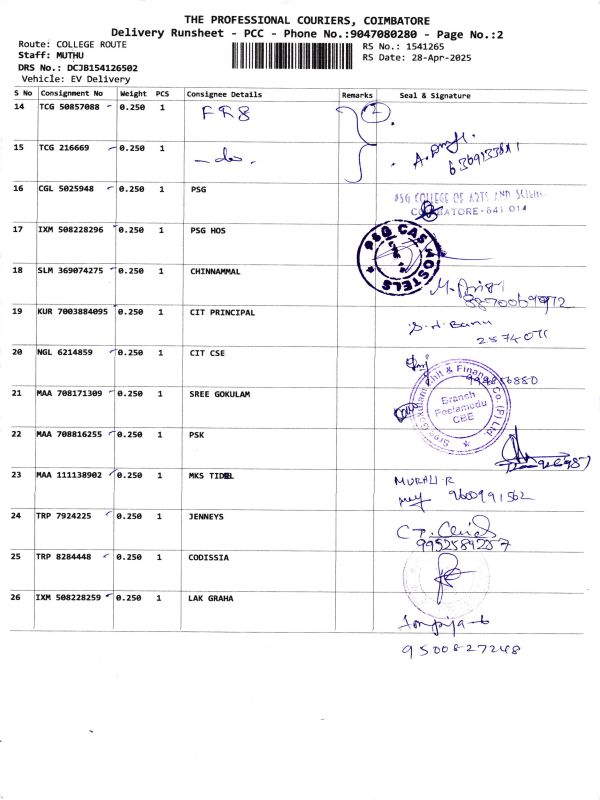 THE PROFESSIONAL COURIERS, COIMBATORE
Delivery Runsheet - PCC - Phone No.:9047080280 - Page No.:2
Route: COLLEGE ROUTE RS No.: 1541265
Staff: MUTHU RS Date: 28-Apr-2025
DRS No.: DCJB154126502
Vehicle: EV Delivery
S No Consignment No Weight PCS Consignee Details Remarks Seal & Signature
14 TCG 50857088 0.250 1 FR8 2
15 TCG 216669 0.250 1 - do.
16 CGL 5025948 0.250 1 PSG PSG COLLEGE OF ARTS AND SCIENCE
COIMBATORE-641 014
17 IXM 508228296 0.250 1 PSG HOS PSG CAS HOSTELS
18 SLM 369074275 0.250 1 CHINNAMMAL
19 KUR 7003884095 0.250 1 CIT PRINCIPAL S.N. Banu
2574071
20 NGL 6214859 0.250 1 CIT CSE
21 MAA 708171309 0.250 1 SREE GOKULAM Sree Gokulam Chit & Finance Co. (P) Ltd
Branch
Peelamedu
CBE
22 MAA 708816255 0.250 1 PSK
23 MAA 111138902 0.250 1 MKS TIDEL MURALI-R
9600991562
24 TRP 7924225 0.250 1 JENNEYS
25 TRP 8284448 0.250 1 CODISSIA
26 IXM 508228259 0.250 1 LAK GRAHA
9500827248